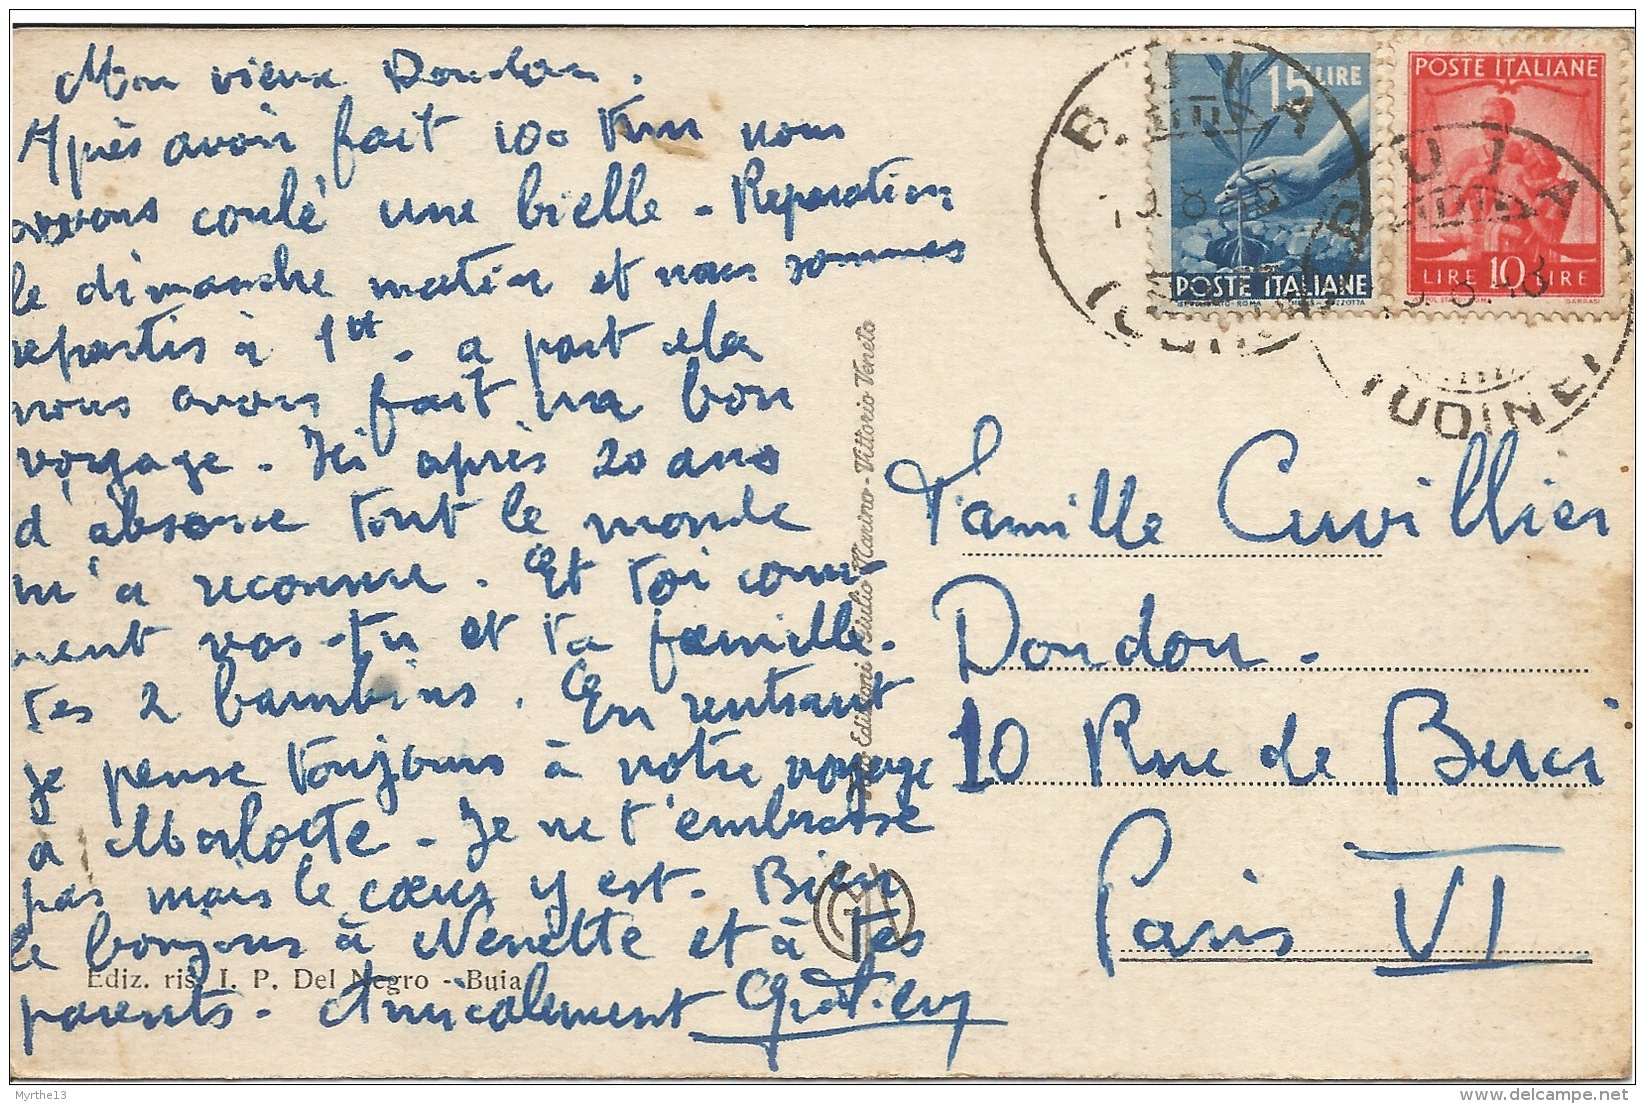 Mon vieux Doudou.
Après avoir fait 100 Km nous
avons coulé une bielle - Reparation
le dimanche matin et nous sommes
repartis à 1h - a part cela
nous avons fait un bon
voyage - Ici après 20 ans
d'absence tout le monde
m'a reconnu. Et toi com-
ment vas-tu et ta famille.
tes 2 bambins. En rentrant
je pense toujours à notre voyage
a Marlotte - Je ne t'embrasse
pas mais le cœur y est. Bien
le bonjour à Nenette et à tes
parents - Amicalement
Ediz. ris. I. P. Del Negro - Buia
Foto Edizioni Giulio Marino - Vittorio Veneto
15 LIRE
POSTE ITALIANE
POSTE ITALIANE
LIRE 10 LIRE
BUIA
(UDINE)
BUIA
(UDINE)
Famille Cuvillier
Doudou.
10 Rue de Buci
Paris VI
Myrthe13
delcampe.net